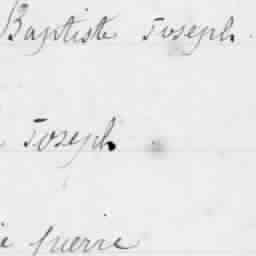 Baptiste Joseph
Joseph
ie pierre